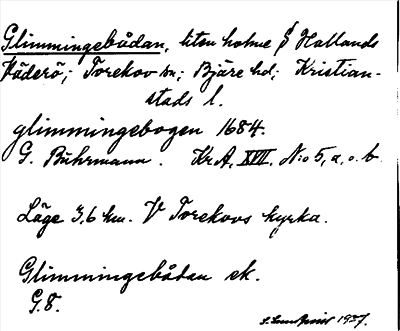 Glimmingebådan, liten holme S Hallands
Väderö; Torekov sn; Bjäre hd; Kristian-
stads l.
glimmingebogen 1684.
G. Buhrmann. Kr.A. XVII. N:o 5, a, o. b.
Läge 3,6 km. V Torekovs kyrka.
Glimmingebådan ek.
G.8.
1937.